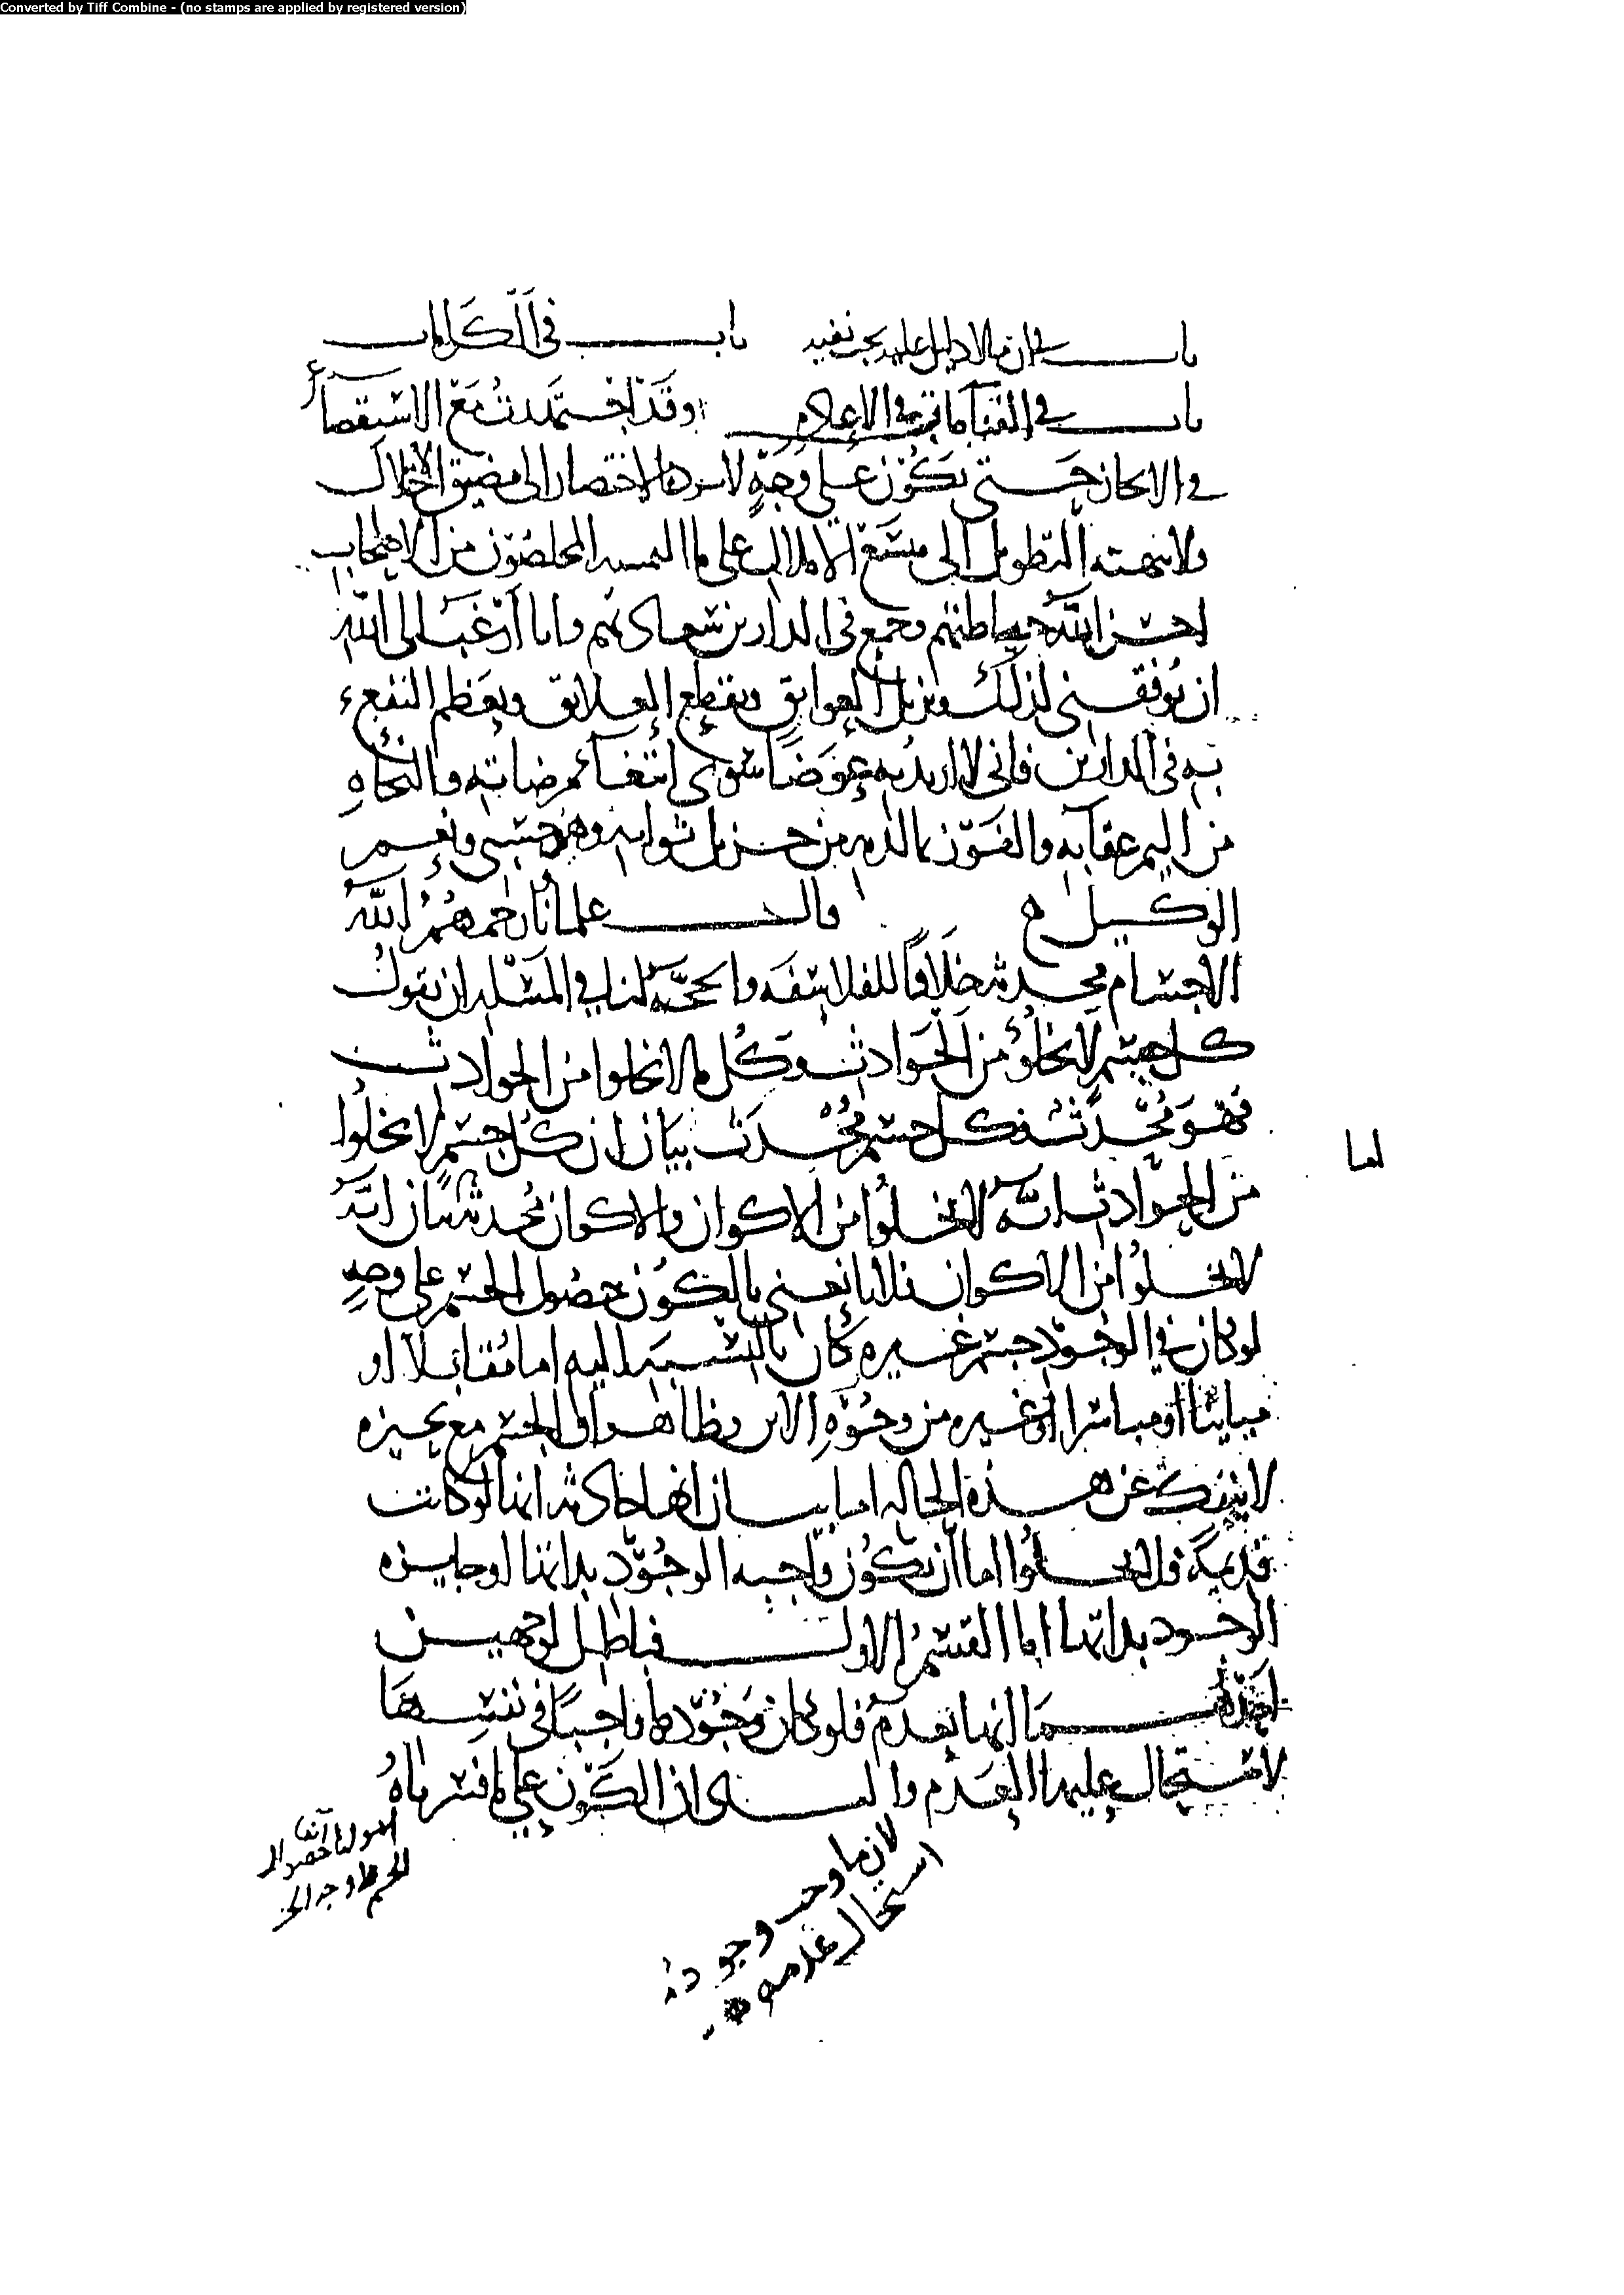 Converted by Tiff Combine - (no stamps are applied by registered version)
باب في ان ما لا دليل عليه يجب نفيه باب في الكرامات
باب في الاعلام وقد اجتهدت مع الاستقصاء
في الايجاز حتى يكون على وجه لا الاختصار الى مضيق الاخلال
ولا التطويل الى متسع الاملال على ما التمسه المخلصون من الاصحاب
احسن الله حياطتهم وجمع في الدارين شملهم وانا ارغب الى الله
ان يوفقني لذلك ويزيل العوايق ويقطع العلايق ويعظم النفع
به في الدارين فاني لا اريد به عوضا سوى ابتغاء مرضاته والنجاه
من اليم عقابه والفوز بما لديه من جزيل ثوابه وهو حسبي ونعم
الوكيل قال علماؤنا رحمهم الله
الاجسام محدثه خلافا للفلاسفه والحجه لنا في المسله ان نقول
كل جسم لا يخلو من الحوادث وكل ما لا يخلوا من الحوادث
فهو محدث فكل جسم محدث بيان ان كل جسم لا يخلوا
من الحوادث انه لا يخلوا من الاكوان والاكوان محدثه بيان انه
لا يخلوا من الاكوان فلانا نعني بالكون حصول الجسم على وجه
لو كان في الوجود جسم غيره كان بالنسبه اليه اما مقابلا او
مباينا او مباشرا الى غيره من وجوه الاين وظاهر ان الجسم مع تحيزه
لا ينفك عن هذه الحاله اما بيان انها حادثه انها لو كانت
قديمه فلا يخلوا اما ان تكون واجبه الوجود بذاتها او جايزه
الوجود بذاتها اما القسم الاول فباطل لوجهين
احدهما انها تعدم فلو كان وجودها واجبا في نفسها
لاستحال عليها العدم والثاني ان الكون على ما فسرناه
اما
لان ما وجب وجوده
استحال عدمه
هو لنا آنفا
حصول
الجسم على وجه الخ